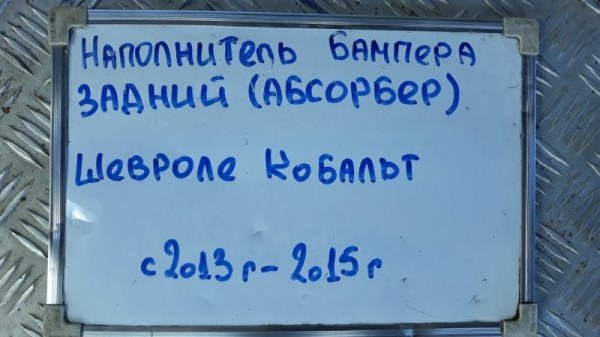 Наполнитель бампера
задний (абсорбер)
Шевроле Кобальт
с 2013г - 2015г